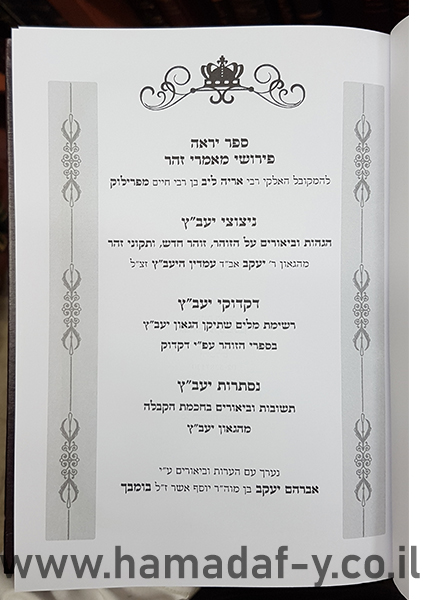 ספר יראה
פירושי מאמרי זהר
להמקובל האלקי רבי אריה ליב בן רבי חיים מפרילוק
ניצוצי יעב״ץ
הגהות וביאורים על הזוהר, זוהר חדש, ותקוני זהר
מהגאון ר׳ יעקב אב״ד עמדין היעב״ץ זצ״ל
דקדוקי יעב״ץ
רשימת מלים שתיקן הגאון יעב״ץ
בספרי הזוהר עפ״י דקדוק
נסתרות יעב״ץ
תשובות וביאורים בחכמת הקבלה
מהגאון יעב״ץ
נערך עם הערות וביאורים ע״י
אברהם יעקב בן מוה״ר יוסף אשר ז״ל בומבך
www.hamadaf-y.co.il